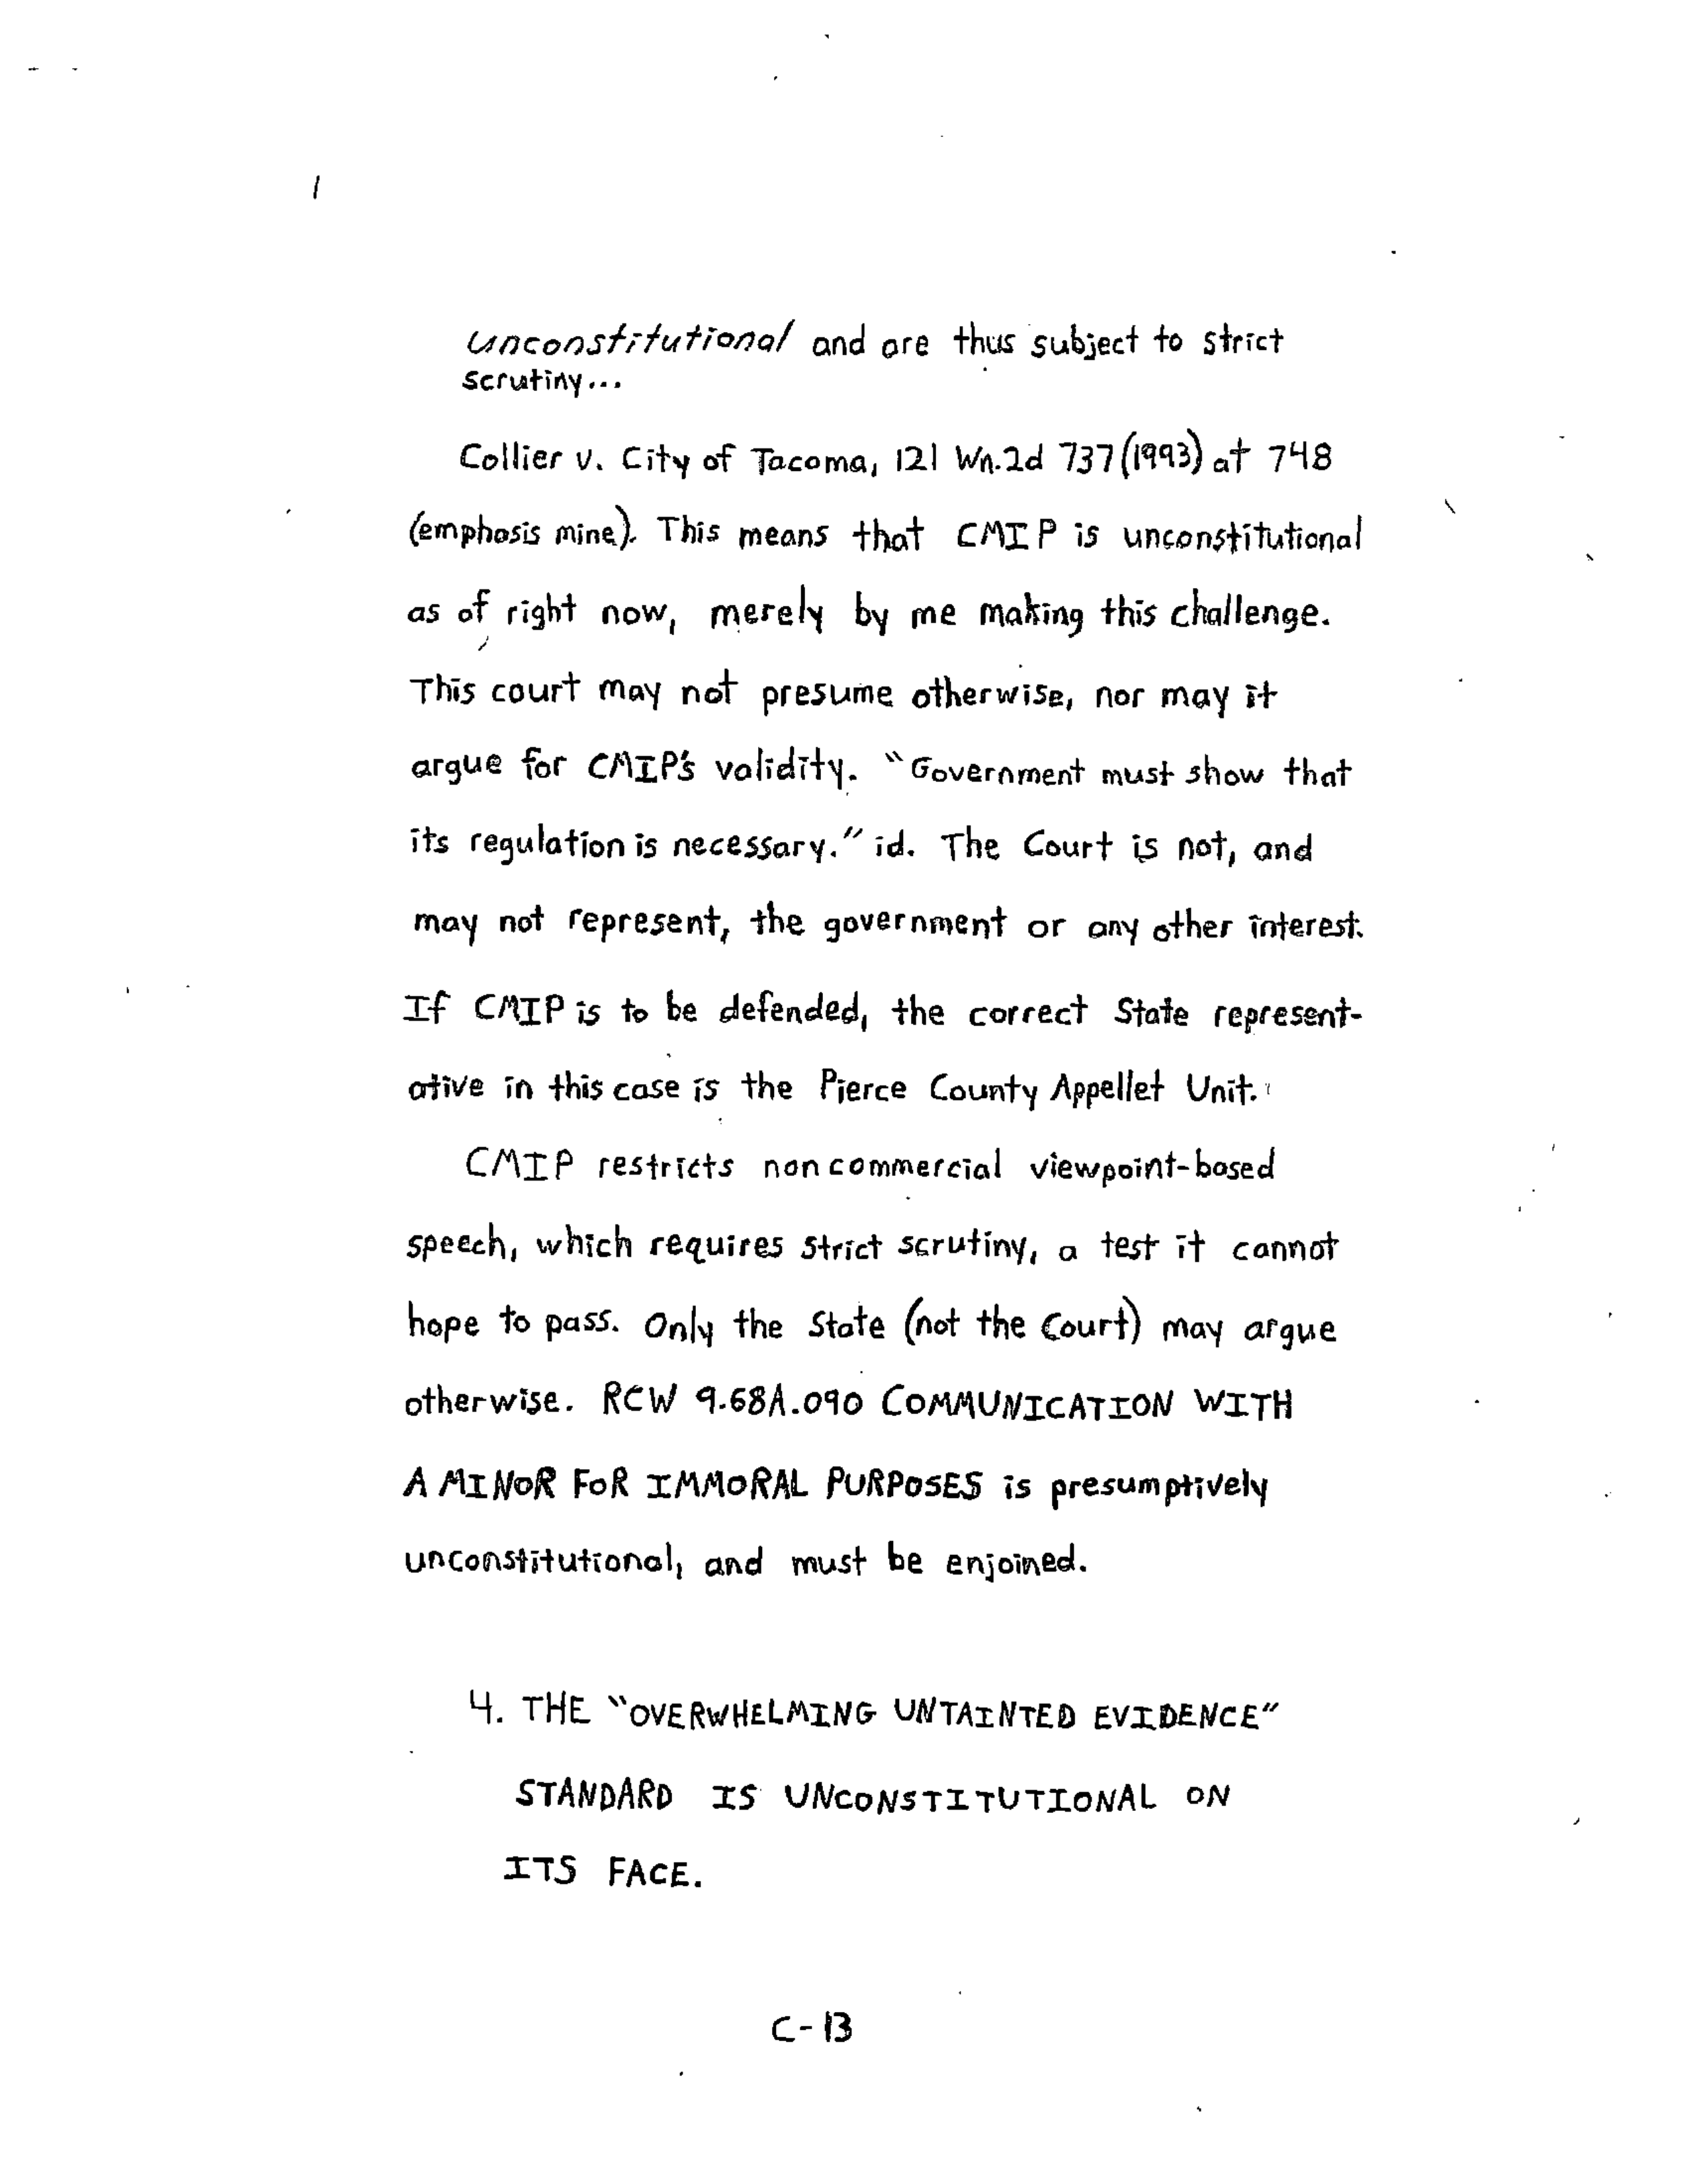 unconstitutional and are thus subject to strict
scrutiny...
Collier v. City of Tacoma, 121 Wn.2d 737 (1993) at 748
(emphasis mine). This means that CMIP is unconstitutional
as of right now, merely by me making this challenge.
This court may not presume otherwise, nor may it
argue for CMIP's validity. "Government must show that
its regulation is necessary." id. The Court is not, and
may not represent, the government or any other interest.
If CMIP is to be defended, the correct State represent-
ative in this case is the Pierce County Appellet Unit.
CMIP restricts noncommercial viewpoint-based
speech, which requires strict scrutiny, a test it cannot
hope to pass. Only the State (not the Court) may argue
otherwise. RCW 9.68A.090 COMMUNICATION WITH
A MINOR FOR IMMORAL PURPOSES is presumptively
unconstitutional, and must be enjoined.
4. THE "OVERWHELMING UNTAINTED EVIDENCE"
STANDARD IS UNCONSTITUTIONAL ON
ITS FACE.
C-13